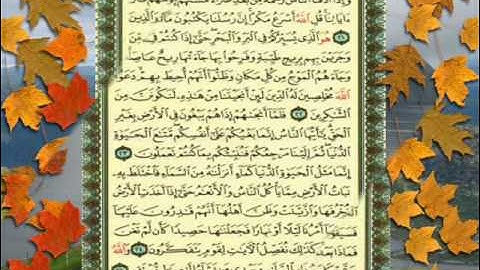 ءَايَاتِنَا قُلِ اللَّهُ أَسْرَعُ مَكْرًا إِنَّ رُسُلَنَا يَكْتُبُونَ مَا تَمْكُرُونَ
﴿٢١﴾ هُوَ الَّذِي يُسَيِّرُكُمْ فِي الْبَرِّ وَالْبَحْرِ حَتَّىٰ إِذَا كُنتُمْ فِي الْفُلْكِ
وَجَرَيْنَ بِهِم بِرِيحٍ طَيِّبَةٍ وَفَرِحُوا بِهَا جَاءَتْهَا رِيحٌ عَاصِفٌ
وَجَاءَهُمُ الْمَوْجُ مِن كُلِّ مَكَانٍ وَظَنُّوا أَنَّهُمْ أُحِيطَ بِهِمْ دَعَوُا
اللَّهَ مُخْلِصِينَ لَهُ الدِّينَ لَئِنْ أَنجَيْتَنَا مِنْ هَٰذِهِ لَنَكُونَنَّ مِنَ
الشَّاكِرِينَ ﴿٢٢﴾ فَلَمَّا أَنجَاهُمْ إِذَا هُمْ يَبْغُونَ فِي الْأَرْضِ بِغَيْرِ
الْحَقِّ يَا أَيُّهَا النَّاسُ إِنَّمَا بَغْيُكُمْ عَلَىٰ أَنفُسِكُم مَّتَاعَ الْحَيَوٰةِ
الدُّنْيَا ثُمَّ إِلَيْنَا مَرْجِعُكُمْ فَنُنَبِّئُكُم بِمَا كُنتُمْ تَعْمَلُونَ ﴿٢٣﴾
إِنَّمَا مَثَلُ الْحَيَوٰةِ الدُّنْيَا كَمَاءٍ أَنزَلْنَاهُ مِنَ السَّمَاءِ فَاخْتَلَطَ بِهِ
نَبَاتُ الْأَرْضِ مِمَّا يَأْكُلُ النَّاسُ وَالْأَنْعَامُ حَتَّىٰ إِذَا أَخَذَتِ الْأَرْضُ
زُخْرُفَهَا وَازَّيَّنَتْ وَظَنَّ أَهْلُهَا أَنَّهُمْ قَادِرُونَ عَلَيْهَا
أَتَاهَا أَمْرُنَا لَيْلًا أَوْ نَهَارًا فَجَعَلْنَاهَا حَصِيدًا كَأَن لَّمْ تَغْنَ
بِالْأَمْسِ كَذَٰلِكَ نُفَصِّلُ الْآيَاتِ لِقَوْمٍ يَتَفَكَّرُونَ ﴿٢٤﴾ وَاللَّهُ